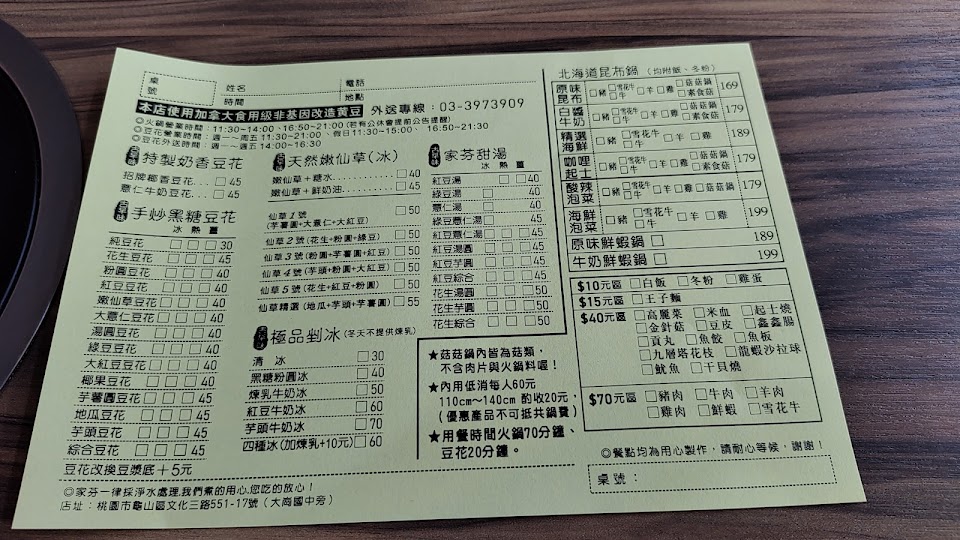 桌號 姓名 電話
時間 地點
本店使用加拿大食用級非基因改造黃豆 外送專線：03-3973909
◎火鍋營業時間：11:30~14:00、16:50~21:00 (若有公休會提前公告提醒)
◎豆花營業時間：週一~周五11:30~21:00、假日11:30~15:00、16:50~21:30
◎豆花外送時間：週一~週五 14:00~16:30
古早味 特製奶香豆花
招牌椰香豆花...□45
薏仁牛奶豆花...□45
古早味 手炒黑糖豆花
冰 熱 薑
純豆花 □□□30
花生豆花 □□□40
粉圓豆花 □□□40
紅豆豆花 □□□40
嫩仙草豆花 □□□40
大薏仁豆花 □□□40
湯圓豆花 □□□40
綠豆豆花 □□□40
大紅豆豆花 □□□40
椰果豆花 □□□40
芋薯圓豆花 □□□45
地瓜豆花 □□□45
芋頭豆花 □□□45
綜合豆花 □□□45
豆花改換豆漿底＋5元
古早味 天然嫩仙草(冰)
嫩仙草＋糖水...........□40
嫩仙草＋鮮奶油.........□45
仙草1號 □50
(芋薯圓+大薏仁+大紅豆)
仙草2號 (花生+粉圓+綠豆) □50
仙草3號 (粉圓+芋薯圓+紅豆) □50
仙草4號 (芋頭+粉圓+大紅豆) □50
仙草5號 (花生+紅豆+粉圓) □50
仙草精選 (地瓜+芋頭+芋薯圓) □55
古早味 極品剉冰 (冬天不提供煉乳)
清 冰 □30
黑糖粉圓冰 □40
煉乳牛奶冰 □50
紅豆牛奶冰 □60
芋頭牛奶冰 □70
四種冰(加煉乳+10元) □60
古早味 家芬甜湯
冰 熱 薑
紅豆湯 □□40
綠豆湯 □ 40
薏仁湯 □ 40
綠豆薏仁湯 □ 40
紅豆薏仁湯 □□□40
紅豆湯圓 □□□40
紅豆芋圓 □□□40
紅豆綜合 □□□40
花生湯圓 □□□50
花生芋圓 □□□50
花生綜合 □□□50
★菇菇鍋內皆為菇類，
不含肉片與火鍋料喔！
★內用低消每人60元
110cm～140cm 酌收20元，
(優惠產品不可抵共鍋費)
★用餐時間火鍋70分鐘、
豆花20分鐘。
北海道昆布鍋 (均附飯、冬粉)
原味昆布 □豬 □雪花牛 □牛 □羊 □雞 □菇菇鍋 □素食菇 169
白醬牛奶 □豬 □雪花牛 □牛 □羊 □雞 □菇菇鍋 □素食菇 179
精選海鮮 □豬 □雪花牛 □牛 □羊 □雞 189
咖哩起士 □豬 □雪花牛 □牛 □羊 □雞 □菇菇鍋 □素食菇 179
酸辣泡菜 □豬 □雪花牛 □牛 □羊 □雞 □菇菇鍋 179
海鮮泡菜 □豬 □雪花牛 □牛 □羊 □雞 199
原味鮮蝦鍋 □ 189
牛奶鮮蝦鍋 □ 199
$10元區 □白飯 □冬粉 □雞蛋
$15元區 □王子麵
$40元區 □高麗菜 □米血 □起士燒
□金針菇 □豆皮 □鑫鑫腸
□貢丸 □魚餃 □魚板
□九層塔花枝 □龍蝦沙拉球
□魷魚 □干貝燒
$70元區 □豬肉 □牛肉 □羊肉
□雞肉 □鮮蝦 □雪花牛
◎餐點均為用心製作，請耐心等候，謝謝！
桌號：
◎家芬一律採淨水處理,我們煮的用心,您吃的放心！
店址：桃園市龜山區文化三路551-17號（大崗國中旁）